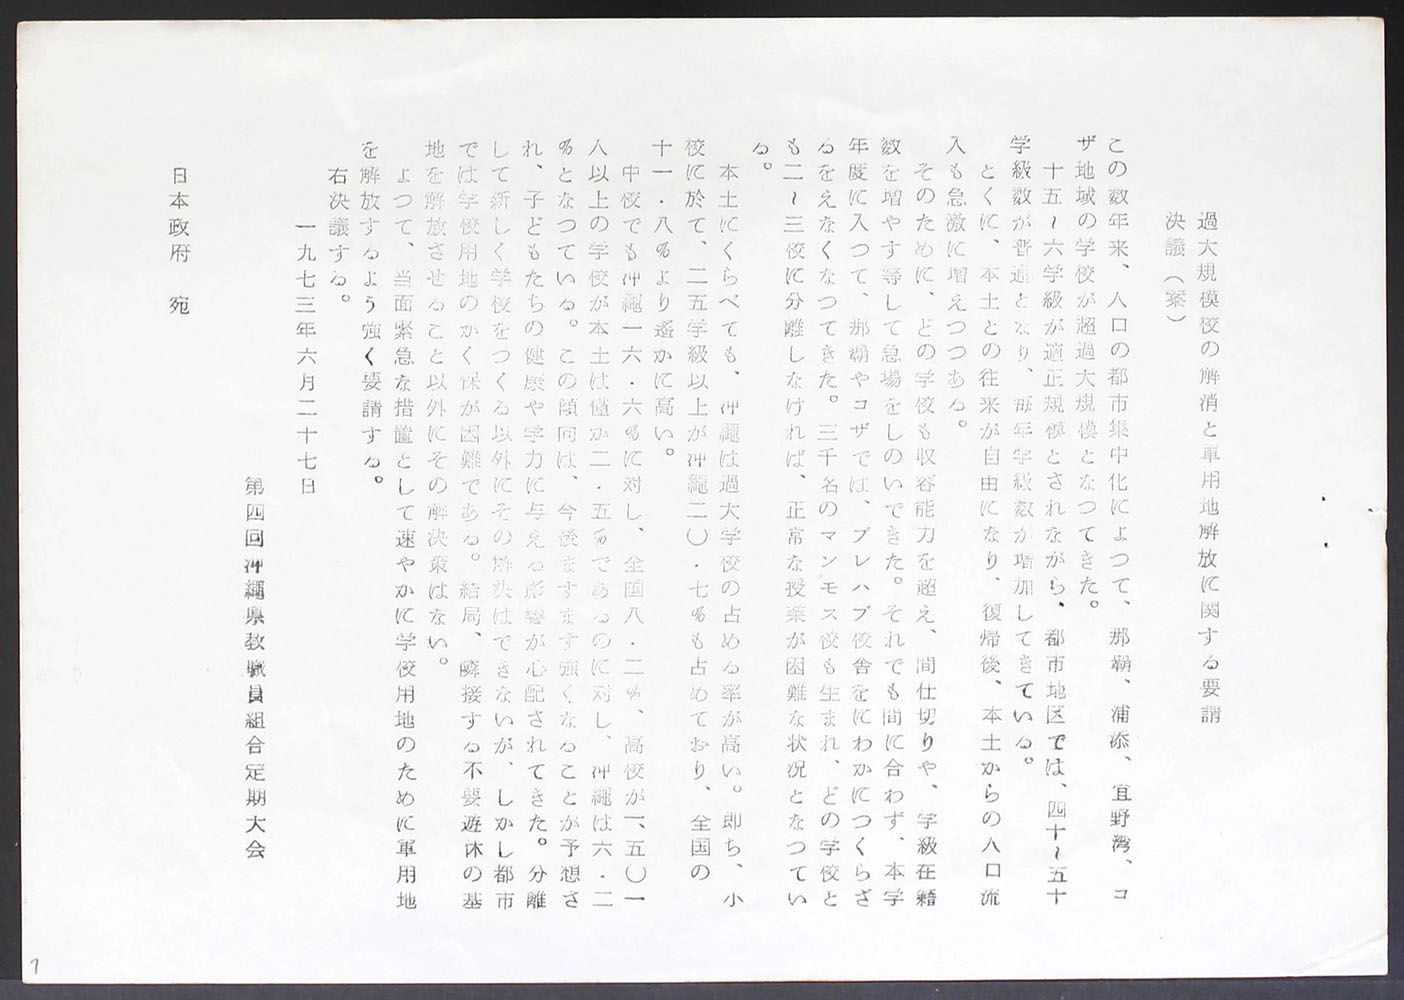 過大規模校の解消と軍用地解放に関する要請
決議（案）
この数年来、人口の都市集中化によつて、那覇、浦添、宜野湾、コ
ザ地域の学校が超過大規模となつてきた。
十五～六学級が適正規模とされながら、都市地区では、四十～五十
学級数が普通となり、毎年学級数が増加してきている。
とくに、本土との往来が自由になり、復帰後、本土からの人口流
入も急激に増えつつある。
そのために、どの学校も収容能力を超え、間仕切りや、学級在籍
数を増やす等して急場をしのいできた。それでも間に合わず、本学
年度に入つて、那覇やコザでは、プレハブ校舎をにわかにつくらざ
るをえなくなつてきた。三千名のマンモス校も生まれ、どの学校と
も二～三校に分離しなければ、正常な授業が困難な状況となつてい
る。
本土にくらべても、沖縄は過大学校の占める率が高い。即ち、小
校に於て、二五学級以上が沖縄二〇・七％も占めており、全国の
十一・八％より遙かに高い。
中校でも沖縄一六・六％に対し、全国八・二％、高校が一、五〇一
人以上の学校が本土は僅か二・五％であるのに対し、沖縄は六・二
％となつている。この傾向は、今後ますます強くなることが予想さ
れ、子どもたちの健康や学力に与える影響が心配されてきた。分離
して新しく学校をつくる以外にその解決はできないが、しかし都市
では学校用地のかく保が困難である。結局、隣接する不要遊休の基
地を解放させること以外にその解決策はない。
よつて、当面緊急な措置として速やかに学校用地のために軍用地
を解放するよう強く要請する。
右決議する。
一九七三年六月二十七日
第四回沖縄県教職員組合定期大会
日本政府　宛
7